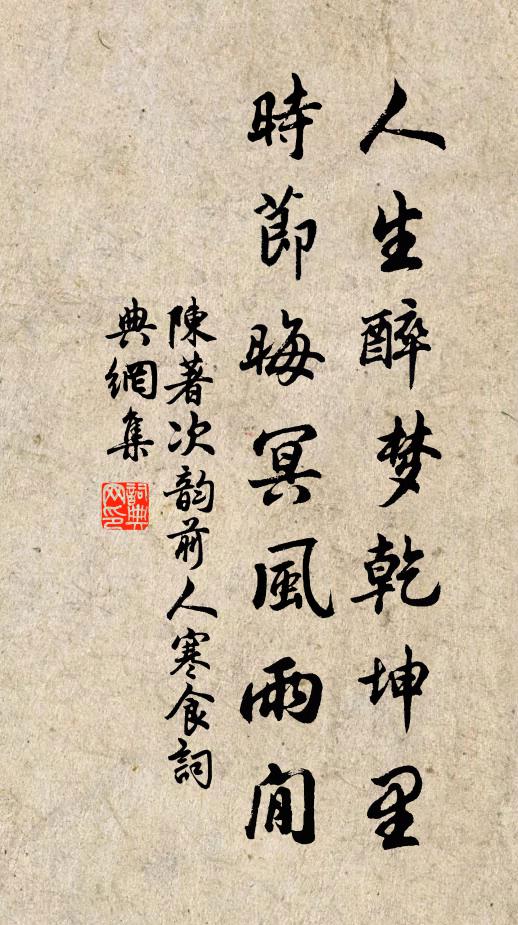 人生醉梦乾坤里
時節晦冥風雨間
陳著次韵前人寒食詞
典網集
詞典
网印